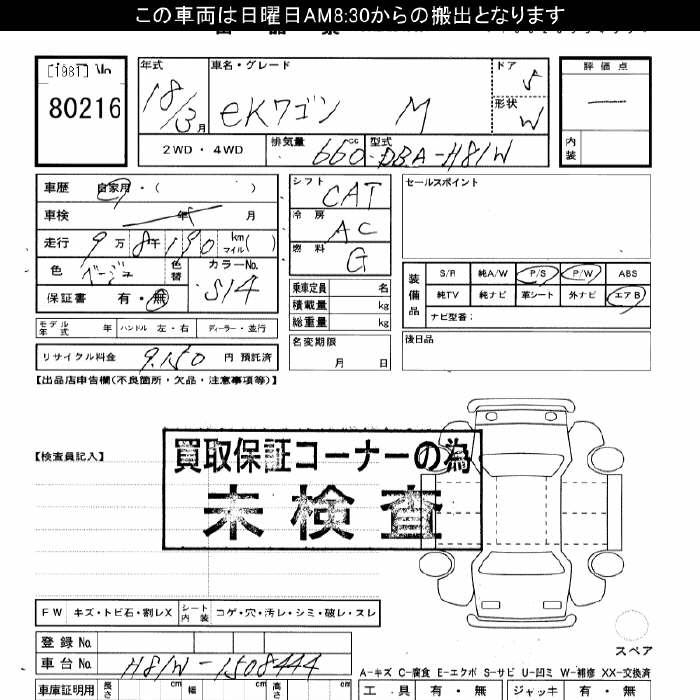 この車両は日曜日AM8:30からの搬出となります
[1981] No
80216
年式 18/3月
車名・グレード eKワゴン M
ドア 5
形状 W
評価点 —
内装
2WD・4WD 排気量 660cc 型式 DBA-H81W
車歴 自家用・( )
車検 年 月
走行 9万8千190 km マイル( )
色 ベージュ 色替 カラーNo. S14
保証書 有・無
シフト CAT
冷房 AC
燃料 G
乗車定員 名
積載量 kg
総重量 kg
セールスポイント
装備品 S/R 純A/W P/S P/W ABS
純TV 純ナビ 革シート 外ナビ エアB
ナビ型番:
モデル年式 年 ハンドル 左・右 ディーラー・並行
リサイクル料金 9.150 円 預託済
名変期限 月 日
後日品
【出品店申告欄(不良箇所・欠品・注意事項等)】
【検査員記入】
買取保証コーナーの為
未検査
FW キズ・トビ石・割レX シート内装 コゲ・穴・汚レ・シミ・破レ・スレ
登録No
車台No H81W-1508444
スペア
A-キズ C-腐食 E-エクボ S-サビ U-凹ミ W-補修 XX-交換済
車庫証明用 長さ cm 幅 cm 高さ cm
工具 有・無 ジャッキ 有・無